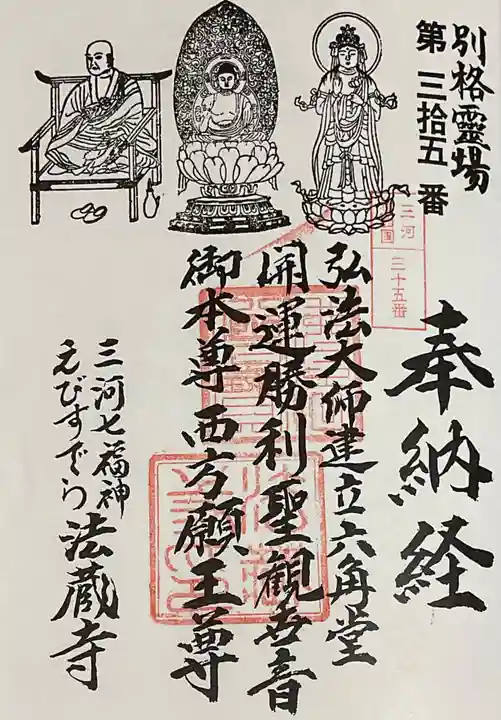 別格霊場
第三拾五番
三河
国
三十五番
奉納経
弘法大师建立六角堂
開運勝利聖観世音
御本尊西方願王尊
三河七福神
えびすでら法蔵寺